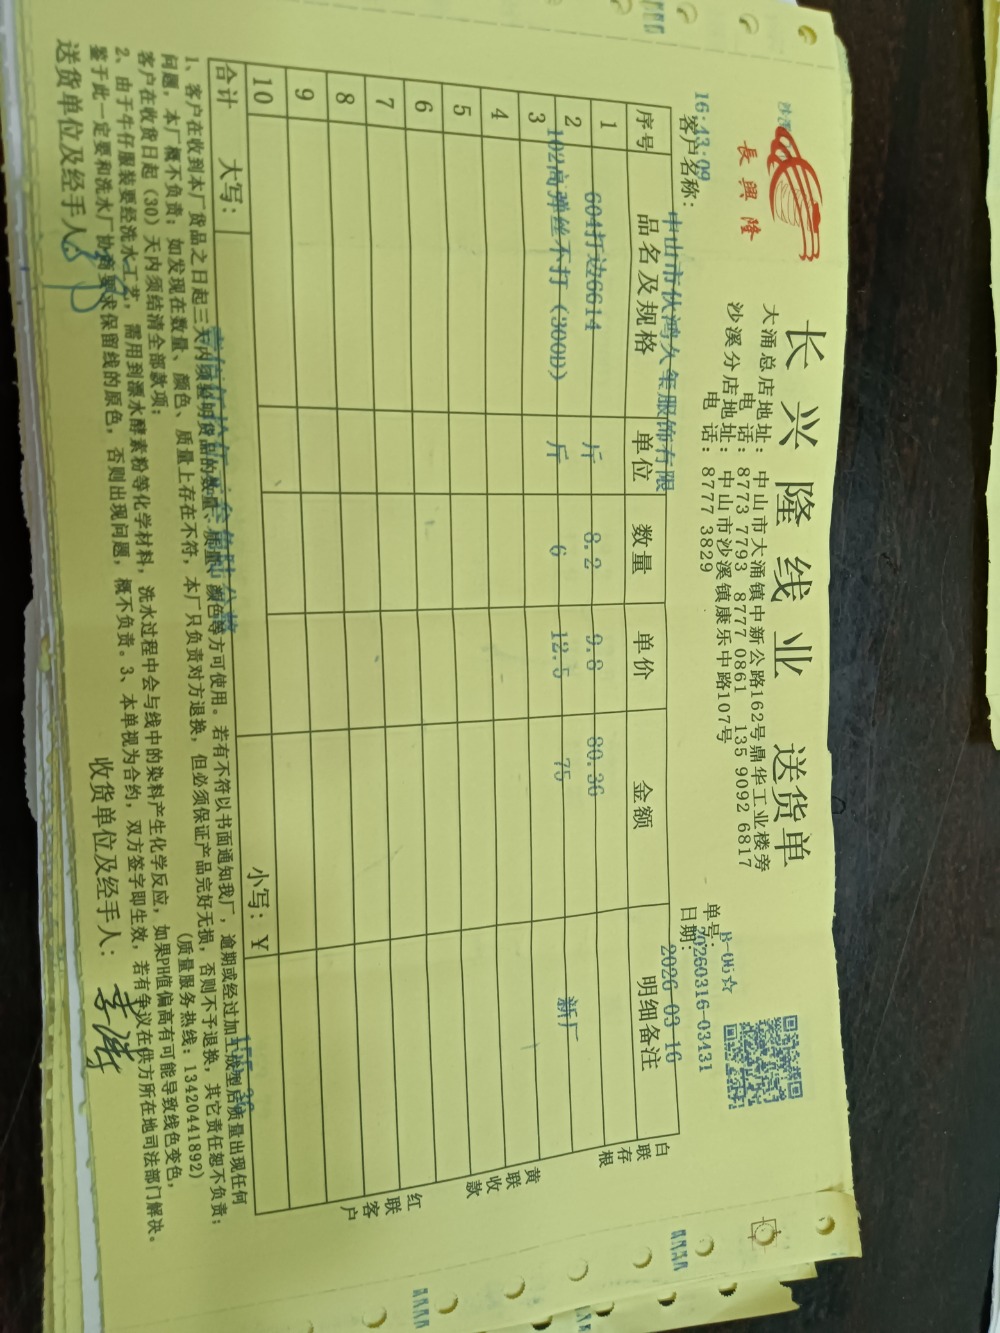 長興隆
长兴隆线业 送货单
大涌总店地址：中山市大涌镇中新公路162号鼎华工业楼旁
电话：8773 7793 8777 0861 135 9092 6817
沙溪分店地址：中山市沙溪镇康乐中路107号
电话：8777 3829
单号：20260316-03431
16:43:09
客户名称：
日期：2026-03-16
序号 品名及规格 单位 数量 单价 金额 明细备注
1 604打边6614 斤 8.2 9.8 80.36
2 102高弹丝不打（300D） 斤 6 12.5 75 新厂
3
4
5
6
7
8
9
10
合计 大写： 小写：￥
白联存根
黄联收款
红联客户
1、客户在收到本厂货品之日起三天内须验明货品的数量、质量、颜色等方可使用。若有不符以书面通知我厂，逾期或经过加工成型后质量出现任何
问题，本厂概不负责；如发现在数量、颜色、质量上存在不符，本厂只负责对方退换，但必须保证产品完好无损，否则不予退换，其它责任恕不负责；
客户在收货日起（30）天内须结清全部款项； （质量服务热线：13420441892）
2、由于牛仔服装要经洗水工艺，需用到漂水酵素粉等化学材料，洗水过程中会与线中的染料产生化学反应，如果PH值偏高有可能导致线色变色，
鉴于此一定要和洗水厂协商要求保留线的原色，否则出现问题，概不负责。3、本单视为合约，双方签字即生效，若有争议在供方所在地司法部门解决。
送货单位及经手人： 收货单位及经手人：